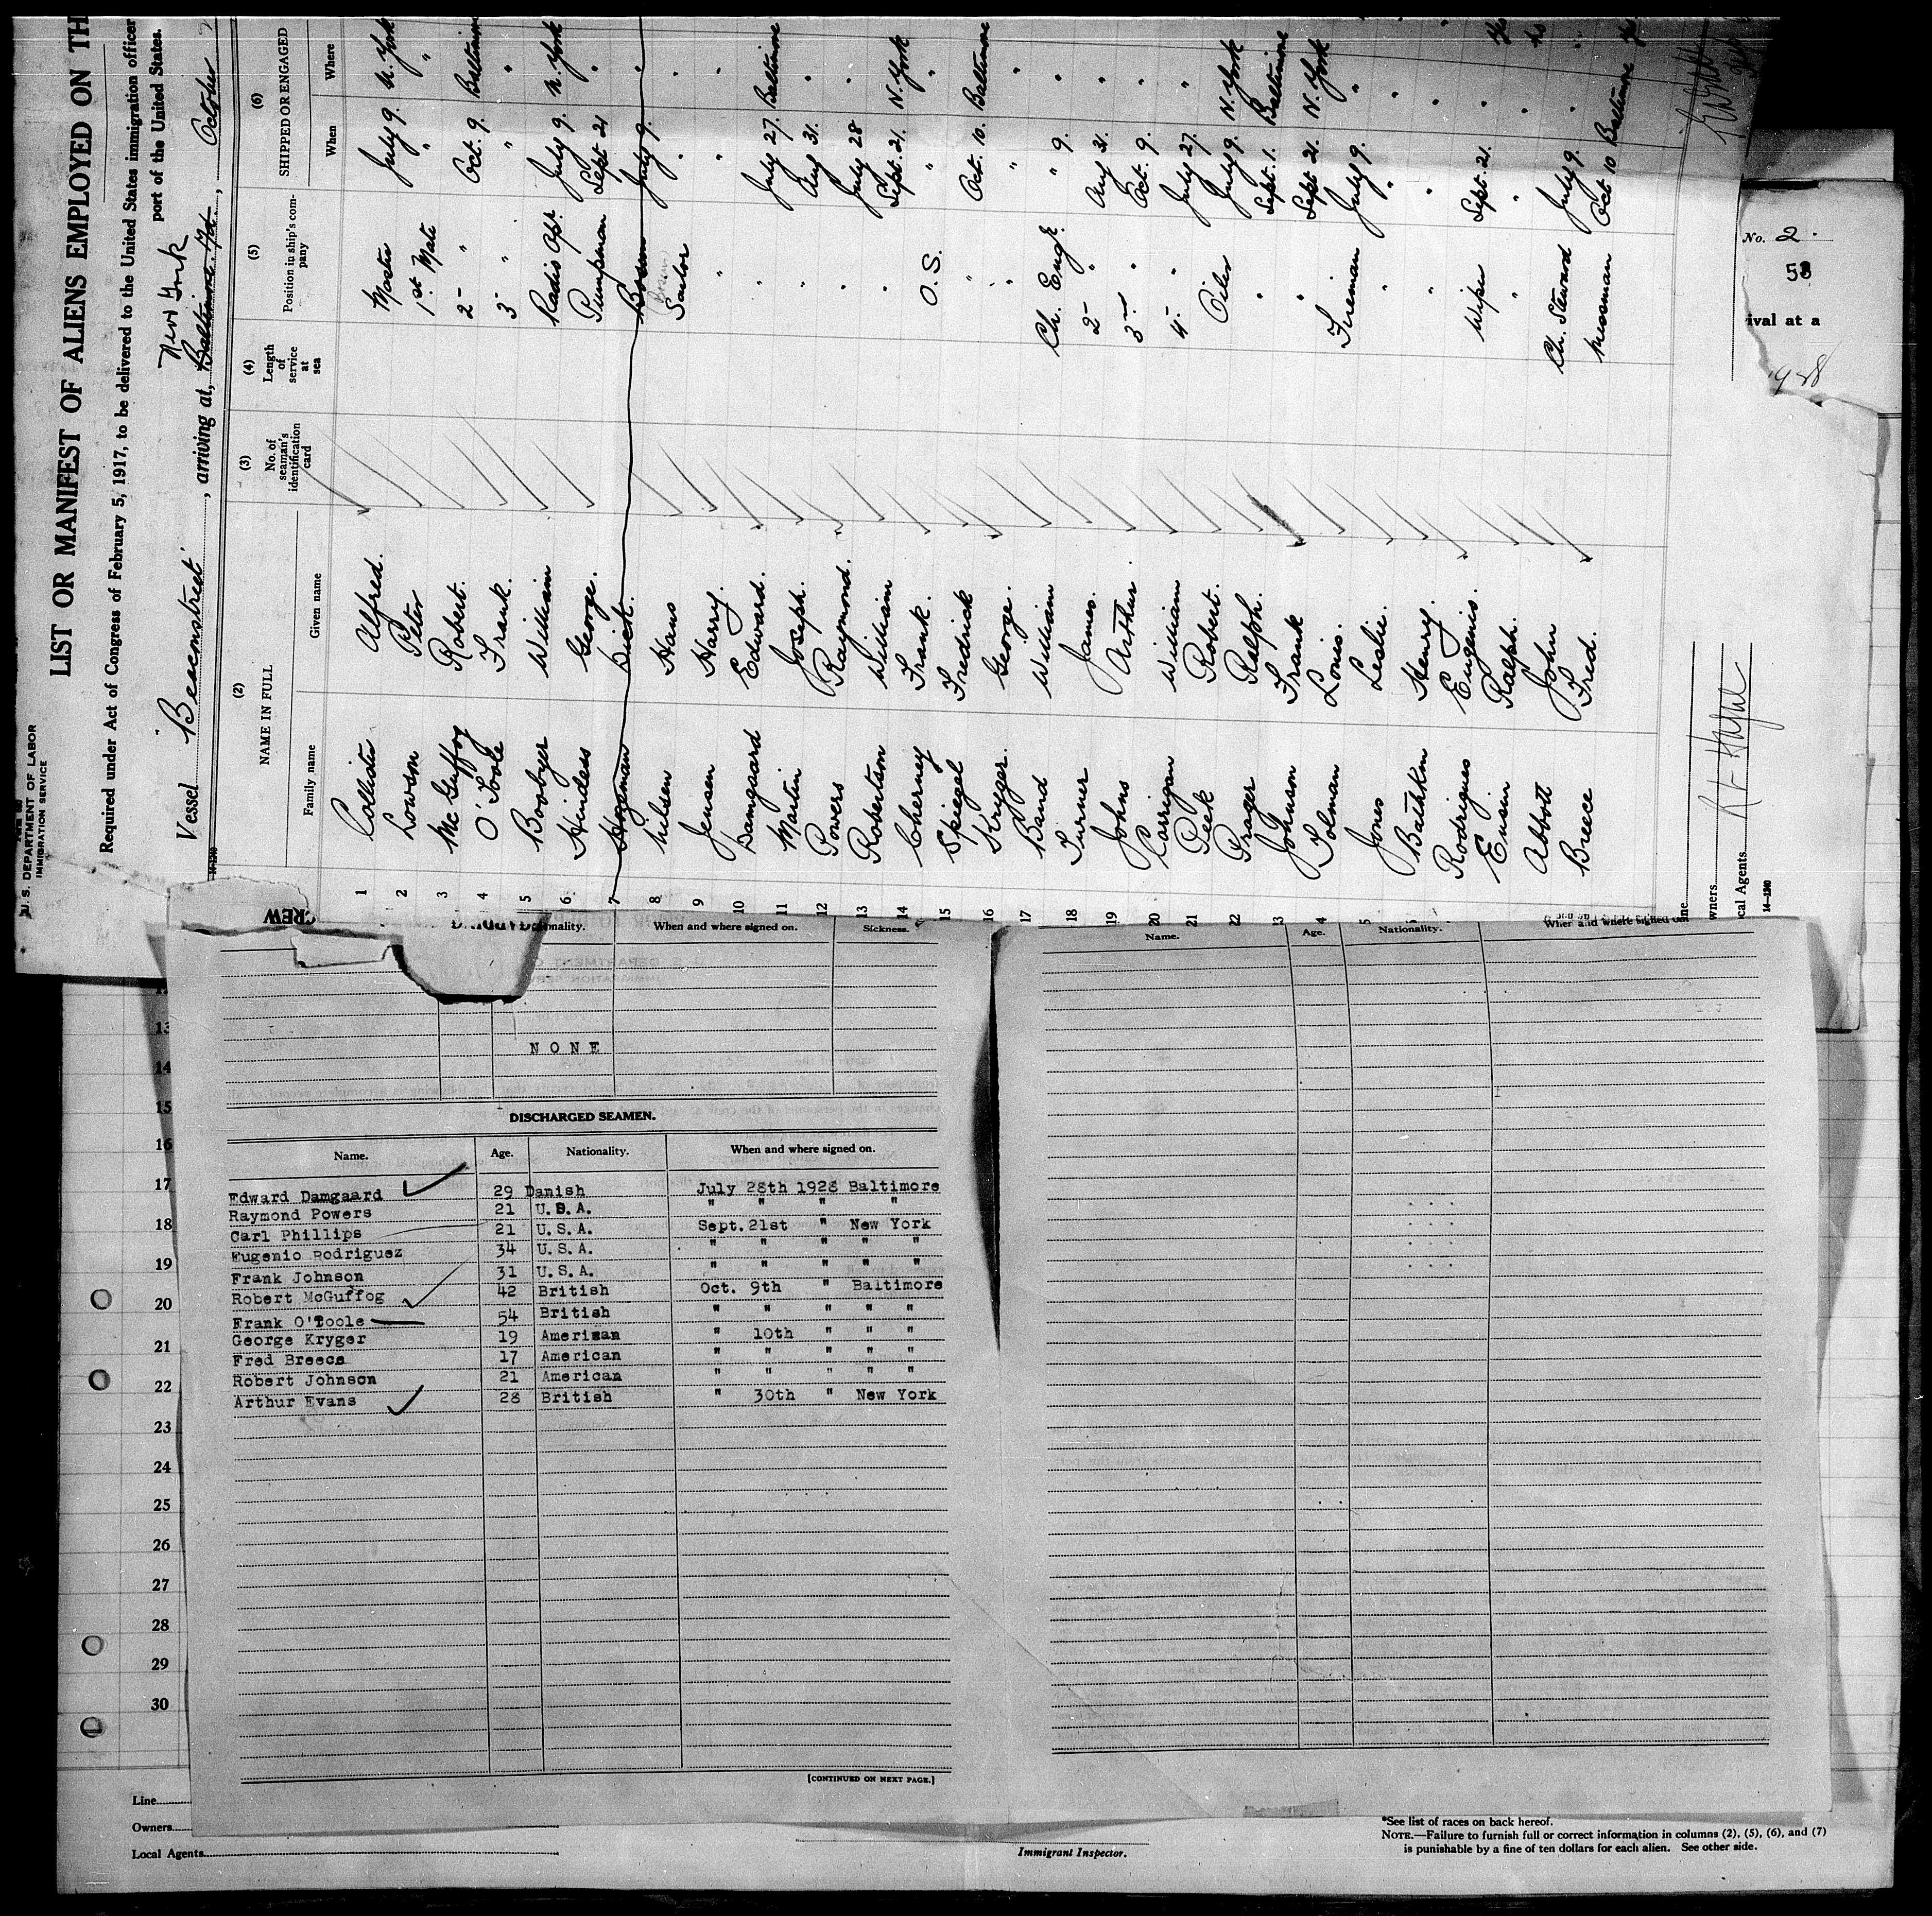 U. S. DEPARTMENT OF LABOR
IMMIGRATION SERVICE
LIST OR MANIFEST OF ALIENS EMPLOYED ON TH
Required under Act of Congress of February 5, 1917, to be delivered to the United States immigration officer
port of the United States.
New York
Vessel "Beaconstreet", arriving at, Baltimore. Md., October
(2) (3) (4) (5) (6)
NAME IN FULL No. of seaman's identification card Length of service at sea Position in ship's company SHIPPED OR ENGAGED
Family name Given name When Where
1 Collister Alfred. Master July 9. N. York
2 Lowson Peter 1st Mate " "
3 McGuffog Robert. 2 " Oct. 9. Baltimore
4 O'Toole Frank. 3 " " "
5 Boobyer William Radio Opr. July 9. N. York
6 Hindess George. Pumpman Sept 21 "
7 Hageman Dick. Bosun July 9. "
8 Nilsen Hans Sailor " "
9 Jensen Harry. "
10 Damgaard Edward. " July 27. Baltimore
11 Martin Joseph. " Aug 31. "
12 Powers Raymond. " July 28 "
13 Robertson William " Sept. 21. N. York
14 Cherney Frank. O. S. " "
15 Spiegel Fredrick " Oct. 10. Baltimore
16 Kryger. George. " " "
17 Band William Ch. Engr. " 9. "
18 Turner James. 2 " Aug 31. "
19 Johns Arthur. 3rd " Oct. 9. "
20 Carrigan William 4 " July 27. "
21 Peck Robert. Oiler July 9. N. York
22 Prager Ralph. " Sept. 1. Baltimore
23 Johnson Frank " Sept 21. N. York
4 Tolman Louis. Fireman July 9. "
5 Jones Leslie. " " "
Bathkin Henry. " " "
Rodrigues Eugenio. Wiper Sept. 21. "
Eusin Ralph. " " "
Abbott John Ch. Steward July 9. "
Breece Fred. Messman Oct 10 Baltimore
Owners
Local Agents
14-1240
No. 2.
53
ival at a
1928
CREW
Nationality. When and where signed on. Sickness.
NONE
DISCHARGED SEAMEN.
Name. Age. Nationality. When and where signed on.
Edward Damgaard 29 Danish July 28th 1928 Baltimore
Raymond Powers 21 U.S.A. " " " "
Carl Phillips 21 U.S.A. Sept. 21st " New York
Eugenio Rodriguez 34 U.S.A. " " " " "
Frank Johnson 31 U.S.A. " " " " "
Robert McGuffog 42 British Oct. 9th " Baltimore
Frank O'Toole 54 British " " " " "
George Kryger 19 American " 10th " " "
Fred Breece 17 American " " " " "
Robert Johnson 21 American " " " " "
Arthur Evans 28 British " 30th " New York
[CONTINUED ON NEXT PAGE.]
Name. Age. Nationality. When and where signed on.
13
14
15
16
17
18
19
20
21
22
23
24
25
26
27
28
29
30
Line
Owners
Local Agents
Immigrant Inspector.
*See list of races on back hereof.
NOTE.—Failure to furnish full or correct information in columns (2), (5), (6), and (7)
is punishable by a fine of ten dollars for each alien. See other side.